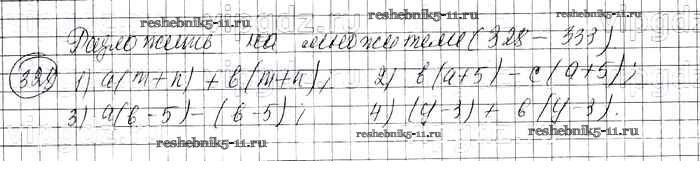 reshebnik5-11.ru
reshebnik5-11.ru
Разложить на множители (328 - 333)
329 1) a(m+n) + b(m+n); 2) b(a+5) - c(a+5);
reshebnik5-11.ru
3) a(b-5) - (b-5); 4) (y-3) + b(y-3).
reshebnik5-11.ru
reshebnik5-11.ru
reshebnik5-11.ru